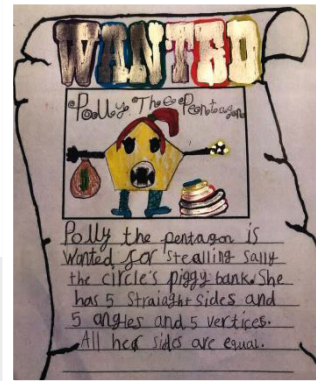 WANTED
Polly The Pentagon
Polly the pentagon is
wanted for stealling sally
the circle's piggy bank. She
has 5 straight sides and
5 angles and 5 vertices.
All her sides are equal.